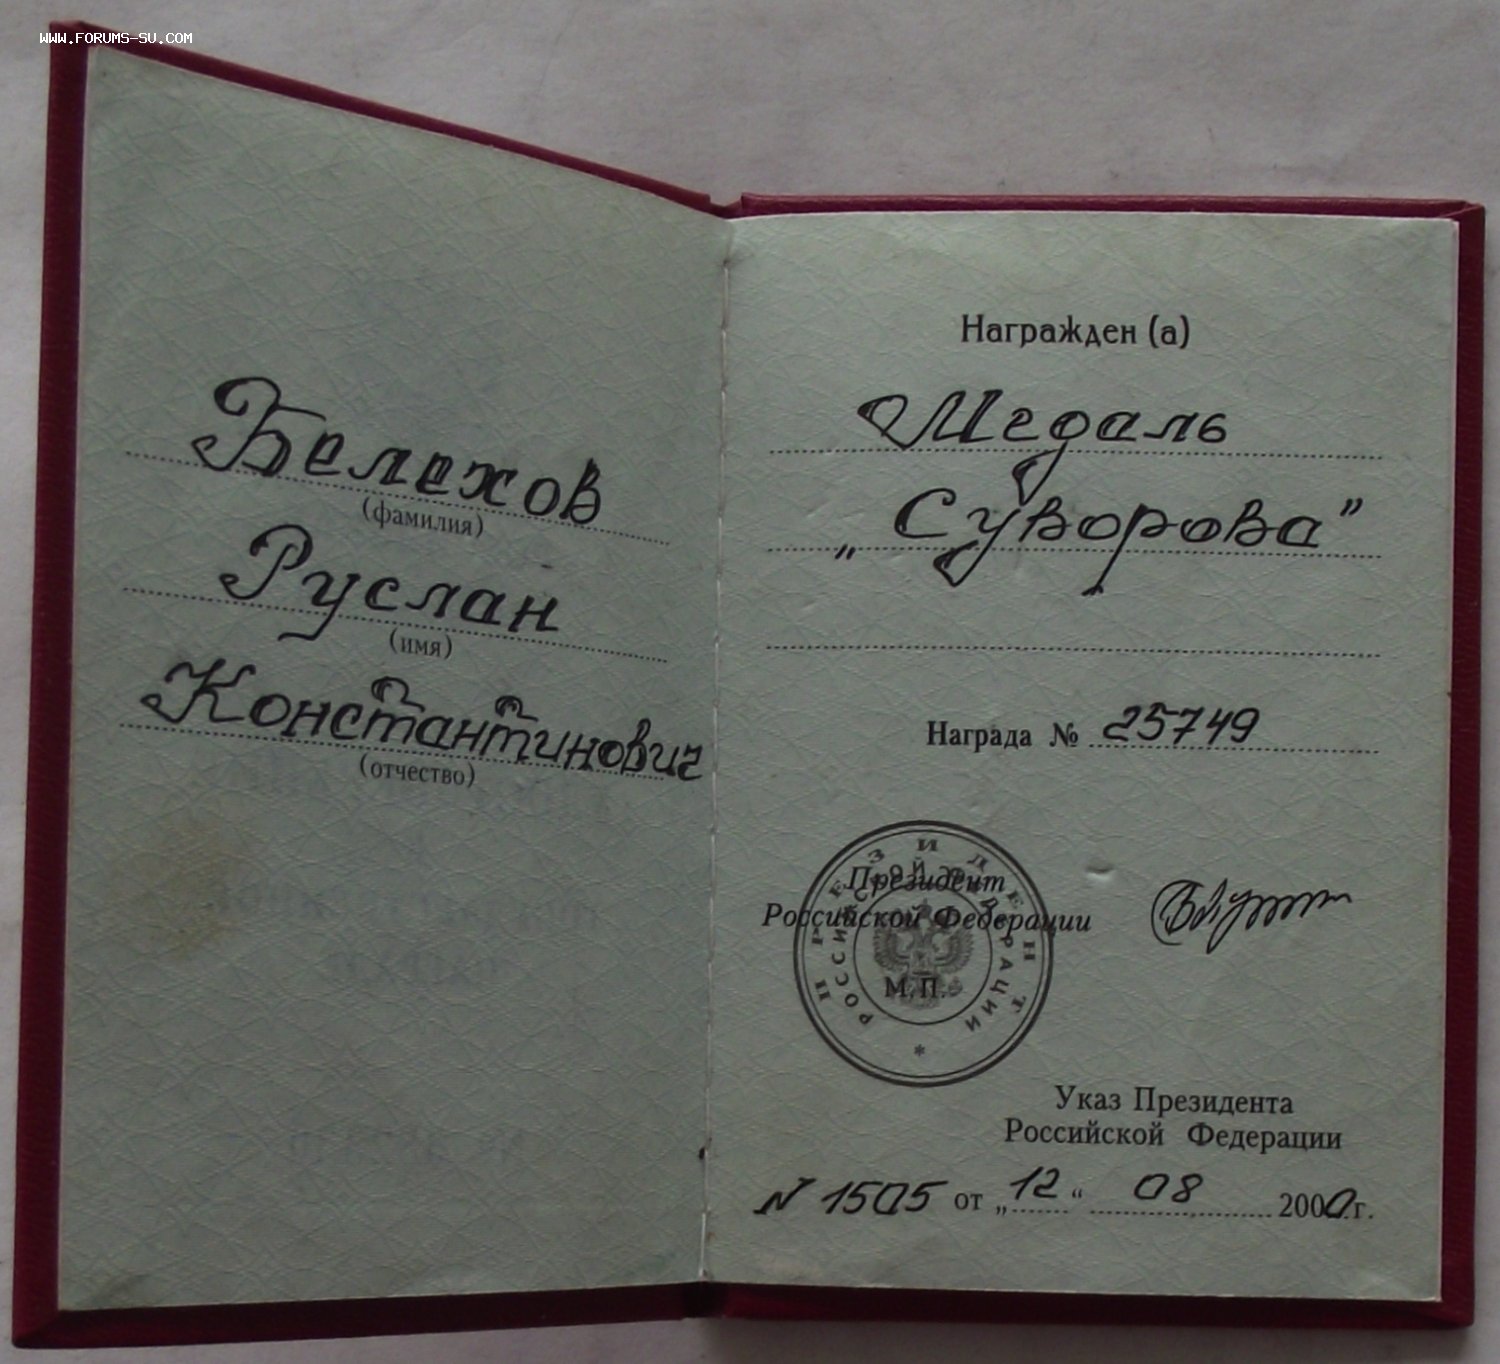 WWW.FORUMS-SU.COM
Белехов
(фамилия)
Руслан
(имя)
Константинович
(отчество)
Награжден (а)
Медаль
„Суворова”
Награда № 25749
ПРЕЗИДЕНТ
РОССИЙСКОЙ ФЕДЕРАЦИИ
*
Президент
Российской Федерации
М.П.
Указ Президента
Российской Федерации
N 1505 от „12“ 08 2000 г.